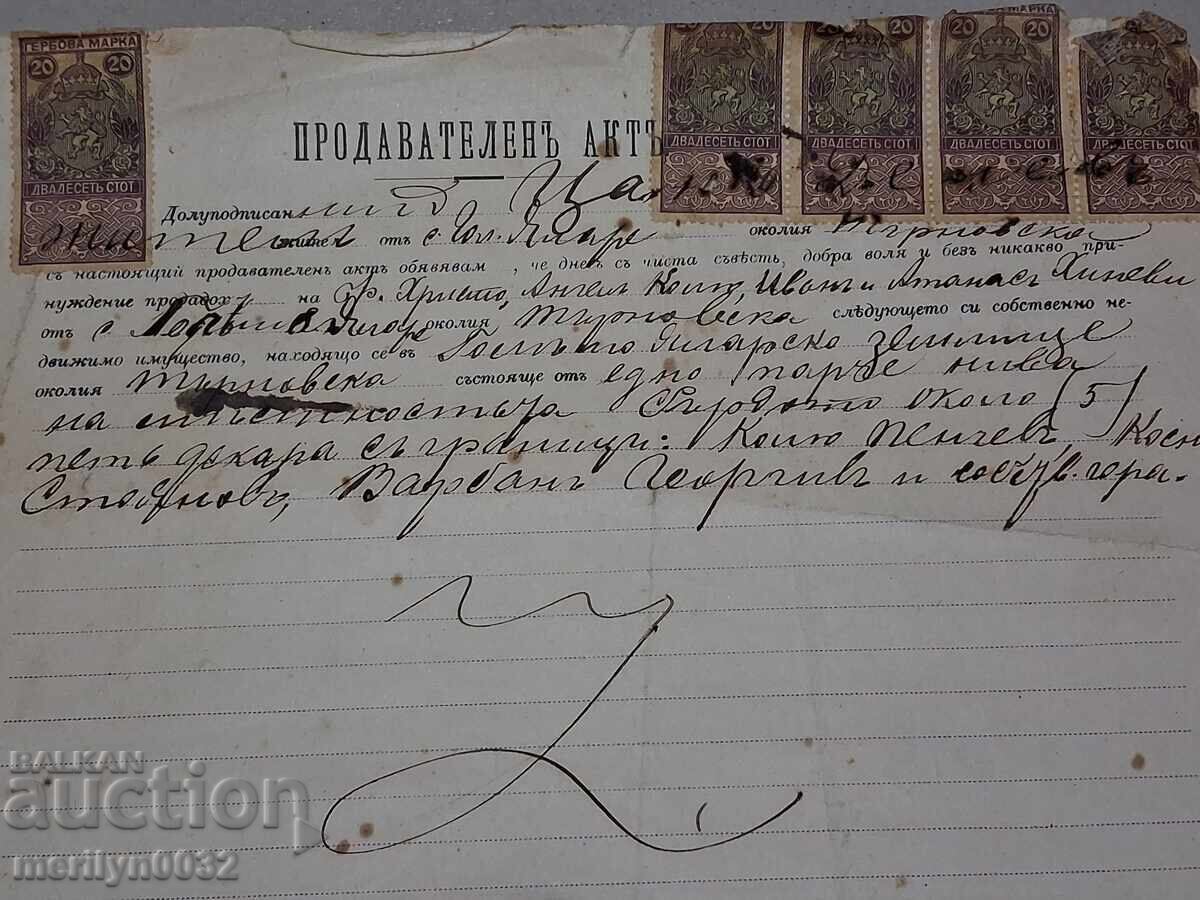 ГЕРБОВА МАРКА
20 20 20 20 20 20
ДВАДЕСЕТЬ СТОТ ДВАДЕСЕТЬ СТОТ ДВАДЕСЕТЬ СТОТ ДВАДЕСЕТЬ СТОТ ДВАДЕСЕТЬ СТОТ
ПРОДАВАТЕЛЕНЪ АКТЪ
Долуподписан
жител отъ с. Гол. Ялар околия Търновска
съ настоящий продавателен актъ обявявам, че днес съ чиста съвѣсть, добра воля и безъ никакво при-
нуждение продадох на Христо, Ангел Колю, Иванъ и Атанасъ Хиневи
отъ с околия Търновска слѣдующето си собственно не-
движимо имущество, находящо се въ Ялларско Землище
околия Търновска състояще отъ едно парче нива
на около (5)
петь декара съ граници: Колю Пенчевъ,
Стояновъ, Върбанъ Георгиев и гора.
BALKAN
auction
merilyn0032